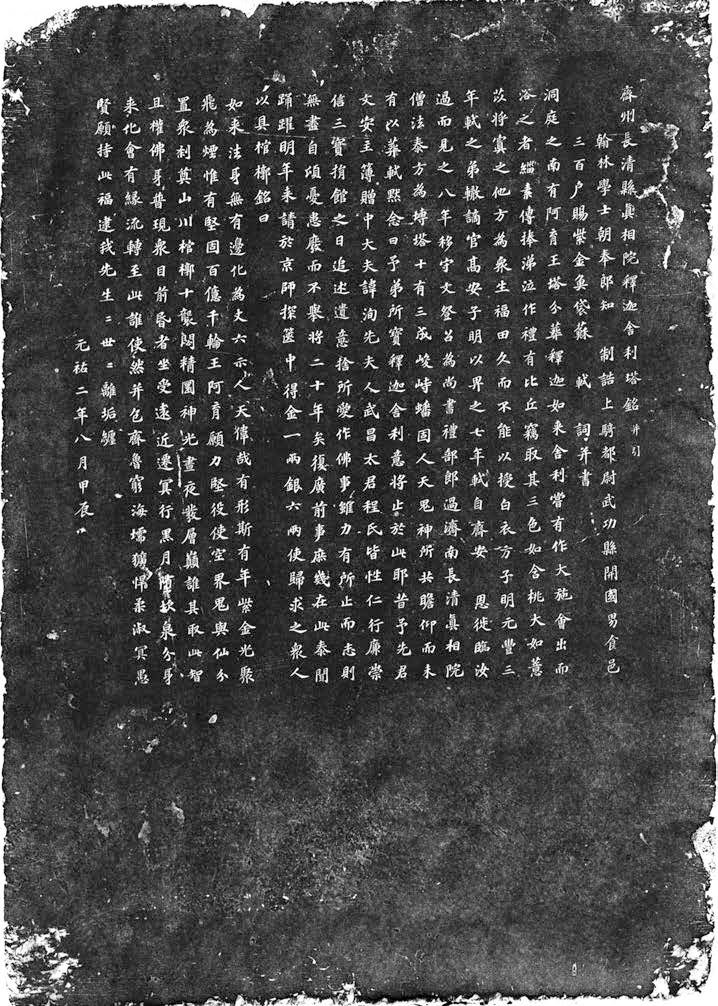 齊州長清縣眞相院釋迦舍利塔銘并引
翰林學士朝奉郎知 制誥上騎都尉武功縣開國男食邑
三百户賜紫金魚袋蘇 軾 詞并書
洞庭之南有阿育王塔分葬釋迦如来舍利嘗有作大施會出而
浴之者緇素傳捧涕泣作禮有比丘竊取其三色如含桃大如薏
苡将寘之他方為衆生福田久而不能以授白衣方子明元豐三
年軾之弟轍謫官髙安子明以畀之七年軾自齊安 恩徙臨汝
過而見之八年移守文登召為尚書禮部郎過濟南長清眞相院
僧法泰方為塼塔十有三成峻峙蟠固人天鬼神所共瞻仰而未
有以葬軾黙念曰予弟所寶釋迦舍利意将止於此耶昔予先君
文安主簿贈中大夫諱洵先夫人武昌太君程氏皆性仁行廉崇
信三寶捐館之日追述遺意捨所愛作佛事雖力有所止而志則
無盡自頃憂患廢而不舉将二十年矣復廣前事庶幾在此泰聞
踊躍明年来請於京師探篋中得金一兩銀六兩使歸求之衆人
以具棺槨銘曰
如来法身無有邊化為丈六示人天偉哉有形斯有年紫金光聚
飛為煙惟有堅固百億千輪王阿育願力堅役使空界鬼與仙分
置衆刹奠山川棺槨十襲閟精圜神光晝夜發層巔誰其取此智
且權佛身普現衆目前昏者坐受遠近遷冥行黒月墮坎泉分身
来化會有緣流轉至此誰使然并包齊魯窮海壖獷悍柔淑冥愚
賢願持此福逮我先生二世二離垢纏
元祐二年八月甲辰